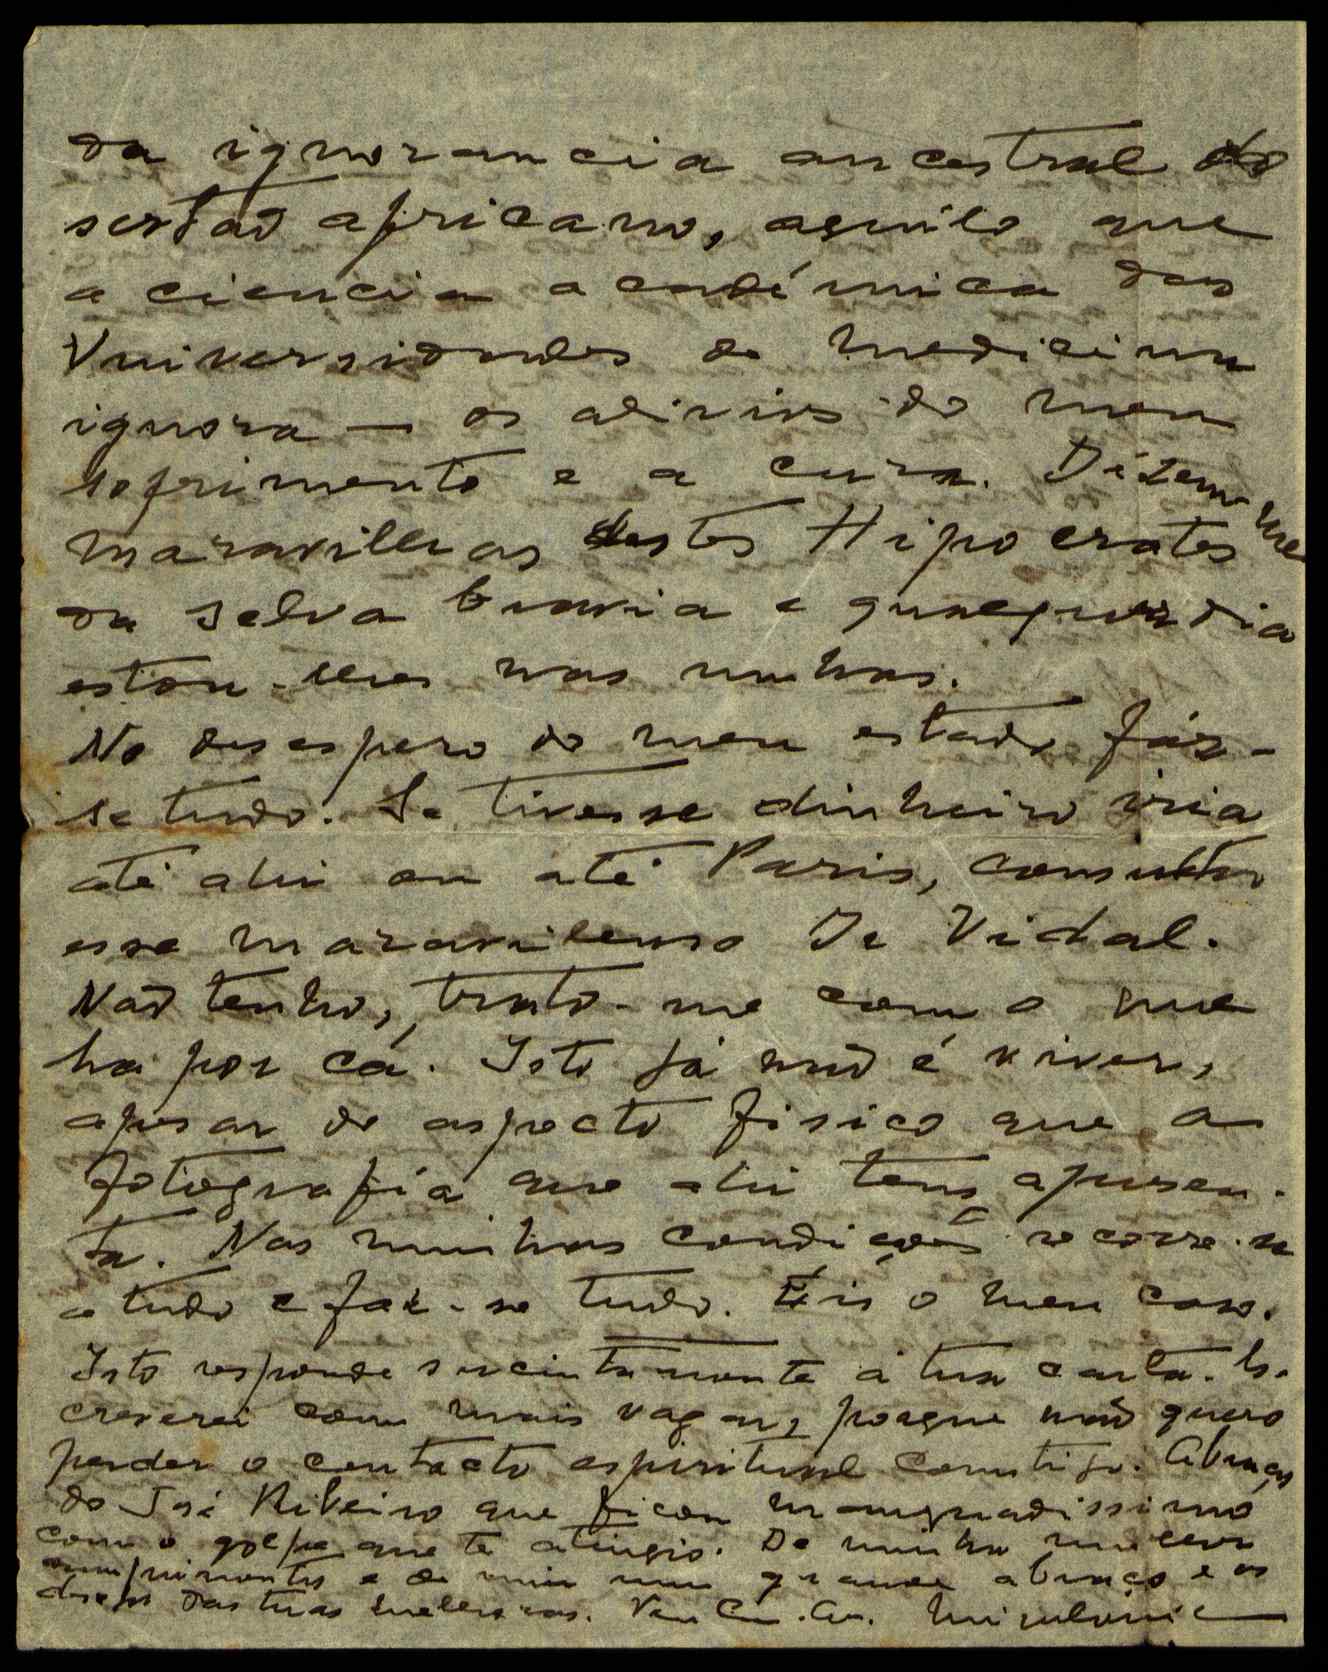 da ignorancia ancestral do
sertaõ africano, aquilo que
a ciencia académica das
Universidades de medicina
ignora — os alivios do meu
sofrimento e a cura. Dizem-me
maravilhas destes Hipocrates
da selva bravia e qualquer dia
estou-lhes nas unhas.
No desespero do meu estado fáz-
se tudo. Se tivesse dinheiro iria
até ahi ou até Paris, consultar
esse maravilhoso Dr Vidal.
Naõ tenho, trato-me com o que
ha por cá. Isto já naõ é viver,
apesar do aspecto fisico que a
fotografia que ahi tens apresen-
ta. Nas minhas condições recorre-se
a tudo e faz-se tudo. Eis o meu caso.
Isto responde sucintamente á tua carta. Es-
creverei com mais vagar, porque naõ quero
perder o contacto espiritual comtigo. Abraços
do José Ribeiro que ficou magoadissimo
com o golpe que te atingio. De minha mulher
cumprimentos e de mim um grande abraço e os
desejos das tuas melhoras.